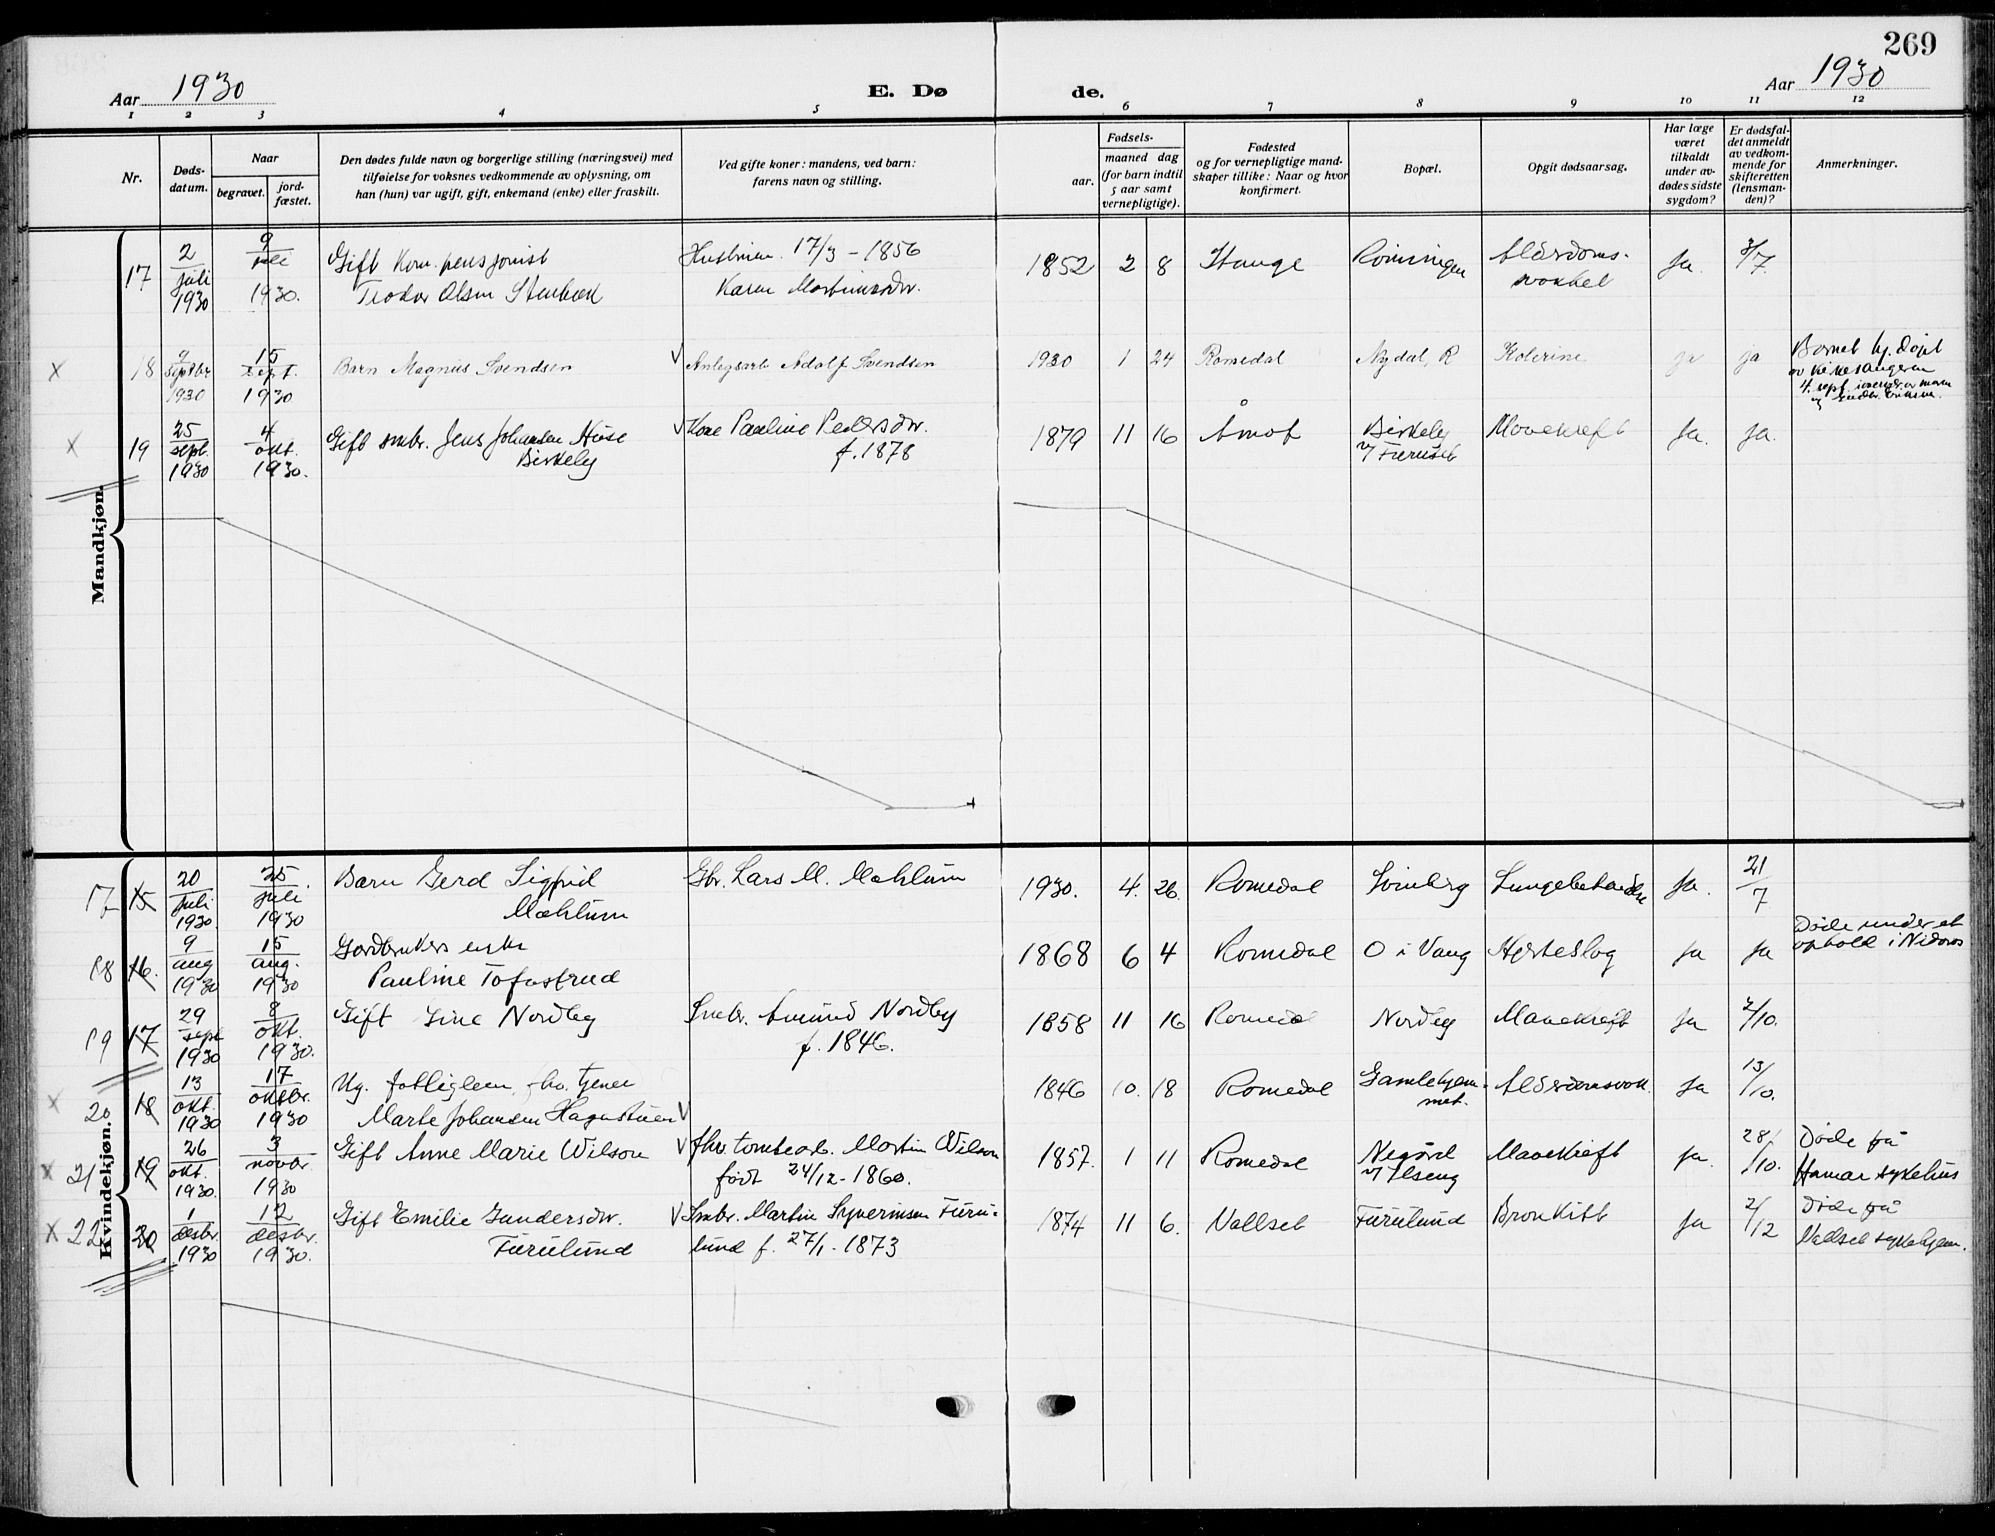 269
Aar 1930
E. Døde.
Aar 1930
1 2 3 4 5 6 7 8 9 10 11 12
Nr.
Døds-
datum.
Naar
begravet.
jord-
fæstet.
Den dødes fulde navn og borgerlige stilling (næringsvei) med
tilføielse for voksnes vedkommende av oplysning, om
han (hun) var ugift, gift, enkemand (enke) eller fraskilt.
Ved gifte koner: mandens, ved barn:
farens navn og stilling.
Fødsels-
aar.
maaned dag
(for barn indtil
5 aar samt
vernepligtige).
Fødested
og for vernepligtige mand-
skaper tillike: Naar og hvor
konfirmert.
Bopæl.
Opgit dødsaarsag.
Har læge
været
tilkaldt
under av-
dødes sidste
sygdom?
Er dødsfal-
det anmeldt
av vedkom-
mende for
skifteretten
(lensman-
den)?
Anmerkninger.
Mandkjøn.
17 2 juli 1930 9 juli 1930. Gift kom. pensjonist
Teodor Olsen Stenbæk
Hustruen 17/3 - 1856
Karen Martinsdtr.
1852 2 8 Stange Rømingen Alderdoms-
svakhet Ja. 3/7
x 18 9 septbr 1930 15 sept. 1930 Barn Magnus Svendsen
Anlegsarb. Adolf Svendsen 1930 1 24 Romedal Nydal, R Kolerine ja ja
Barnet hj. døpt
av kirkesangeren
4. sept.
x 19 25 sept. 1930 4 okt. 1930. Gift smbr. Jens Johansen Huse
Birkely
Kone Pauline Pedersdtr.
f. 1878
1879 11 16 Åmot Birkely
v/ Furuset
Mavekreft Ja. ja.
Kvindekjøn.
17 15 20 juli 1930 25 juli 1930 Barn Gerd Sigfrid
Mæhlum
Gbr. Lars M. Mæhlum 1930. 4. 26. Romedal Lungebetændelse Ja. 21/7
18 16. 9 aug 1930 15 aug. 1930 Gardbrukers enke
Pauline Tofastrud
1868 6 4 Romedal O i Vang Hjerteslag ja ja
Døde under et
ophold i Nidaros
19 17 29 sept 1930 8 okt. 1930. Gift Line Nordby
Smbr. Amund Nordby
f. 1846.
1858 11 16 Romedal Nordby Mavekreft ja 2/10.
x 20 18 13 okt. 1930 17 oktbr. 1930 Ug. fattiglem, fhv. tjener
Marte Johansen Hagastuen
1846 10. 18 Romedal Gamlehjem-
met.
Alderdomsvak. ja 13/10.
x 21 19 26 okt. 1930. 3 novbr 1930 Gift Anne Marie Wilson
fhv. tomtearb. Martin Wilson
født 24/12 - 1860.
1857. 1 11 Romedal Nygård
v/ Ilseng
Mavekreft ja. 28/10.
Døde på
Hamar sykehus
x 22 20 1 desbr. 1930 12 desbr. 1930. Gift Emilie Gundersdtr.
Furulund
Smbr. Martin Syverinsen Furu-
lund f. 27/1 - 1873
1874 11 6. Vallset Furulund Bronkitt ja 2/12
Døde på
Vallset sykehjem.